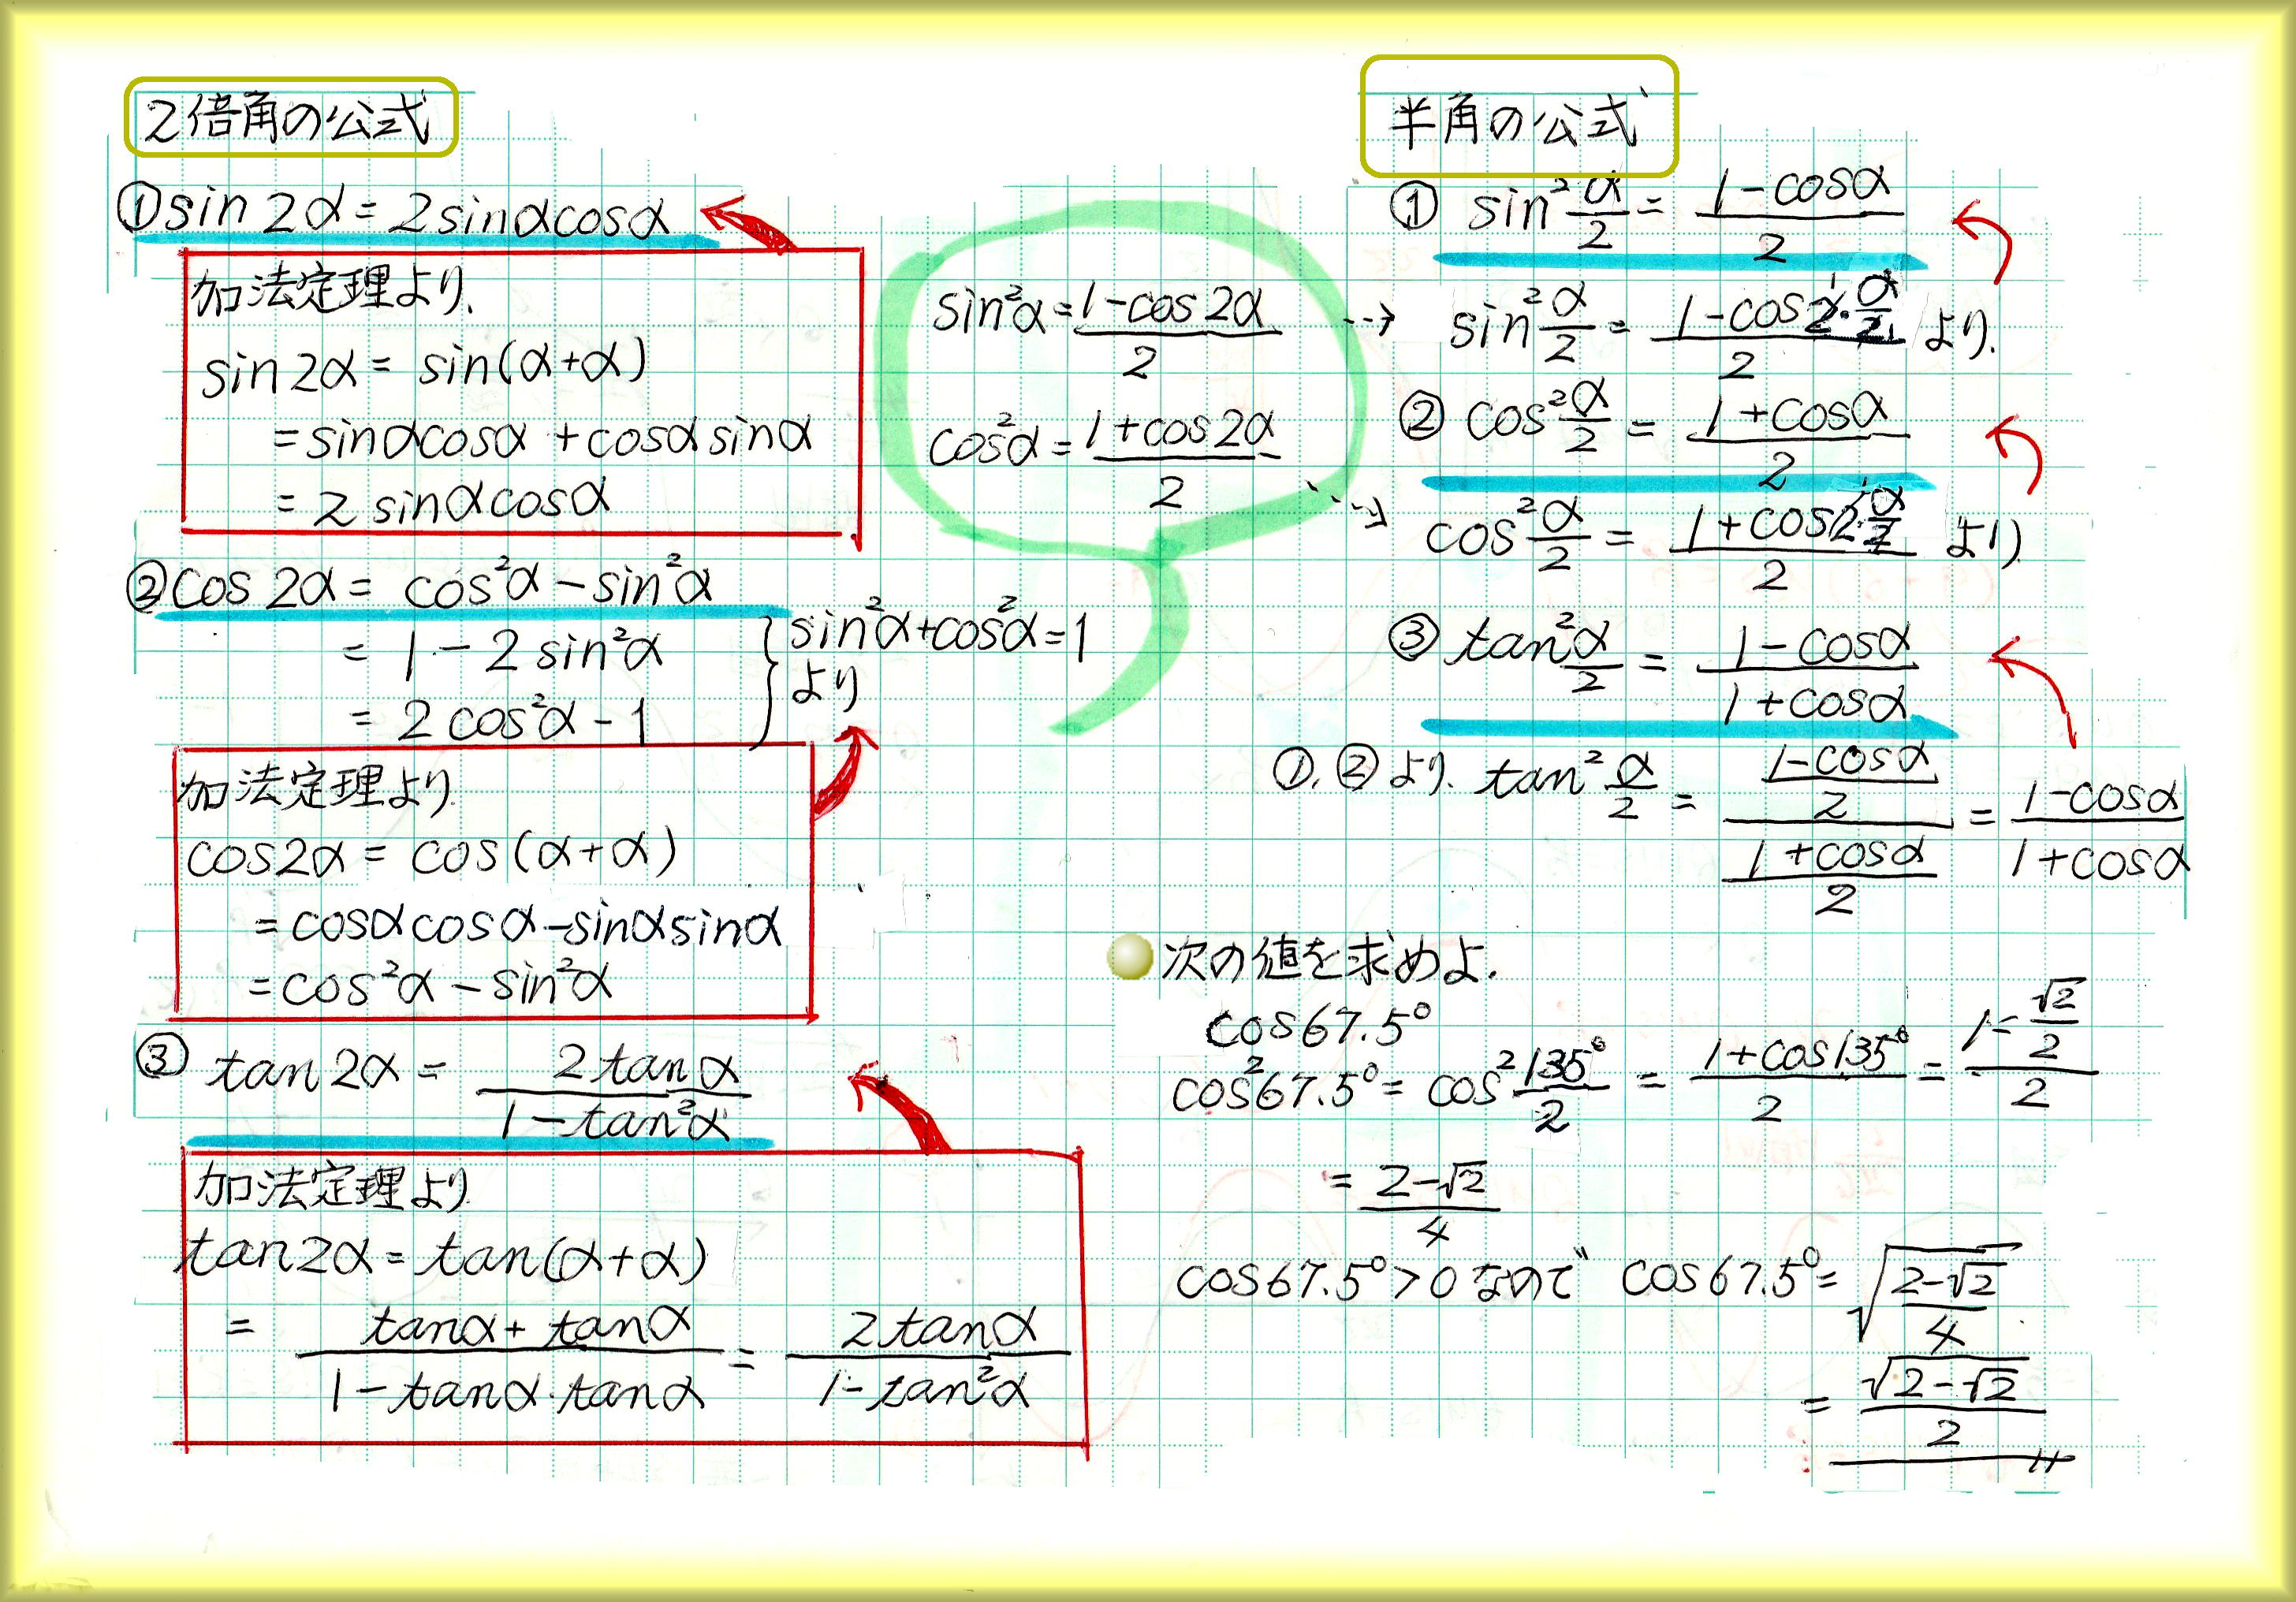 2倍角の公式
① sin2α = 2sinαcosα
加法定理より.
sin2α = sin(α+α)
= sinαcosα + cosαsinα
= 2sinαcosα
② cos2α = cos²α − sin²α
= 1 − 2sin²α
= 2cos²α − 1
sin²α + cos²α = 1
より
加法定理より
cos2α = cos(α+α)
= cosαcosα − sinαsinα
= cos²α − sin²α
③ tan2α = 2tanα / (1 − tan²α)
加法定理より
tan2α = tan(α+α)
= (tanα + tanα) / (1 − tanα·tanα) = 2tanα / (1 − tan²α)
sin²α = (1 − cos2α) / 2
cos²α = (1 + cos2α) / 2
半角の公式
① sin² α/2 = (1 − cosα) / 2
sin² α/2 = (1 − cos2·α/2) / 2 より.
② cos² α/2 = (1 + cosα) / 2
cos² α/2 = (1 + cos2·α/2) / 2 より
③ tan² α/2 = (1 − cosα) / (1 + cosα)
①, ②より. tan² α/2 = ((1 − cosα)/2) / ((1 + cosα)/2) = (1 − cosα) / (1 + cosα)
次の値を求めよ.
cos67.5°
cos²67.5° = cos² 135°/2 = (1 + cos135°) / 2 = (1 − √2/2) / 2
= (2 − √2) / 4
cos67.5° > 0 なので cos67.5° = √((2 − √2) / 4)
= √(2 − √2) / 2